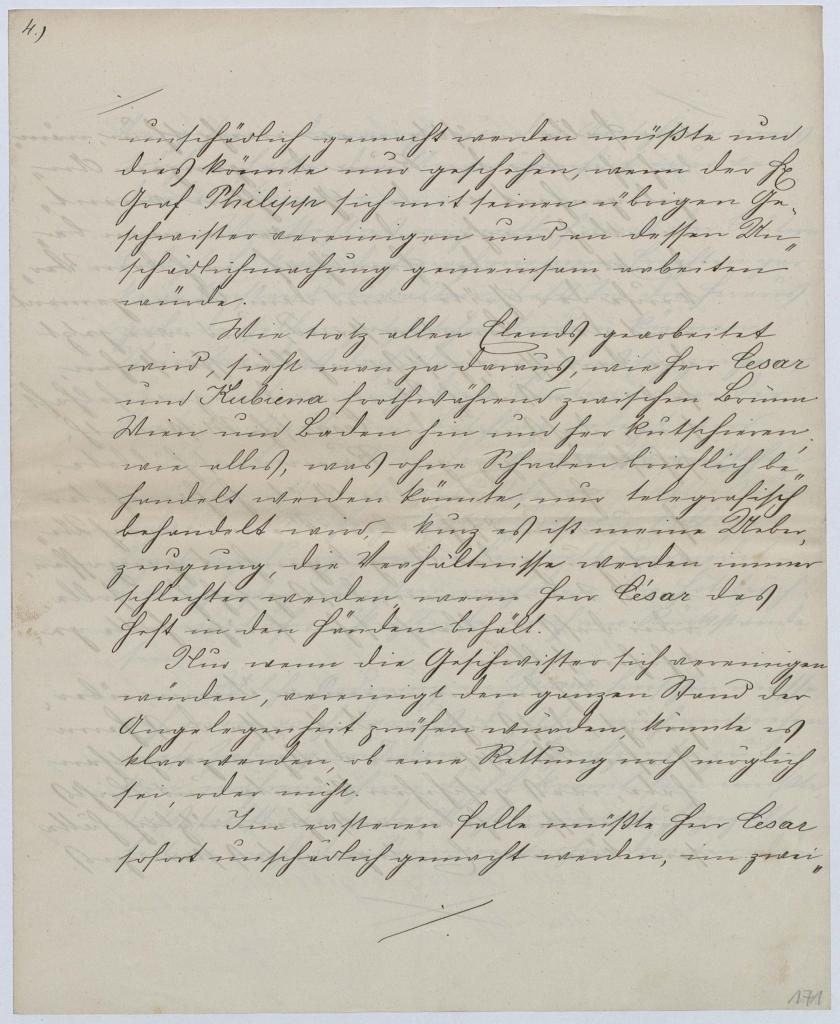 4.)
unschädlich gemacht werden müßte und
dies könnte nur geschehen, wenn der H
Graf Philipp sich mit seinen übrigen Ge„
schwister vereinigen und an dessen Un„
schädlichmachung gemeinsam arbeiten
würde.
Wie trotz allen Elends gearbeitet
wird, sieht man ja daraus, wie Herr Cesar
und Kubiena forthwährend zwischen Brünn
Wien und Baden hin und her kutschieren,
wie alles, was ohne Schaden brieflich be„
handelt werden könnte, nur telegrafisch
behandelt wird, – kurz es ist meine Ueber„
zeugung, die Verhältnisse werden immer
schlechter werden, wenn Herr Césár das
Heft in den Händen behält.
Nur wenn die Geschwister sich vereinigen
würden, vereinigt den ganzen Stand der
Angelegenheit prüfen würden, könnte es
klar werden, ob eine Rettung noch möglich
sei, oder nicht.
Im ersteren Falle müßte Herr Cesar
sofort unschädlich gemacht werden, im zwei„
171